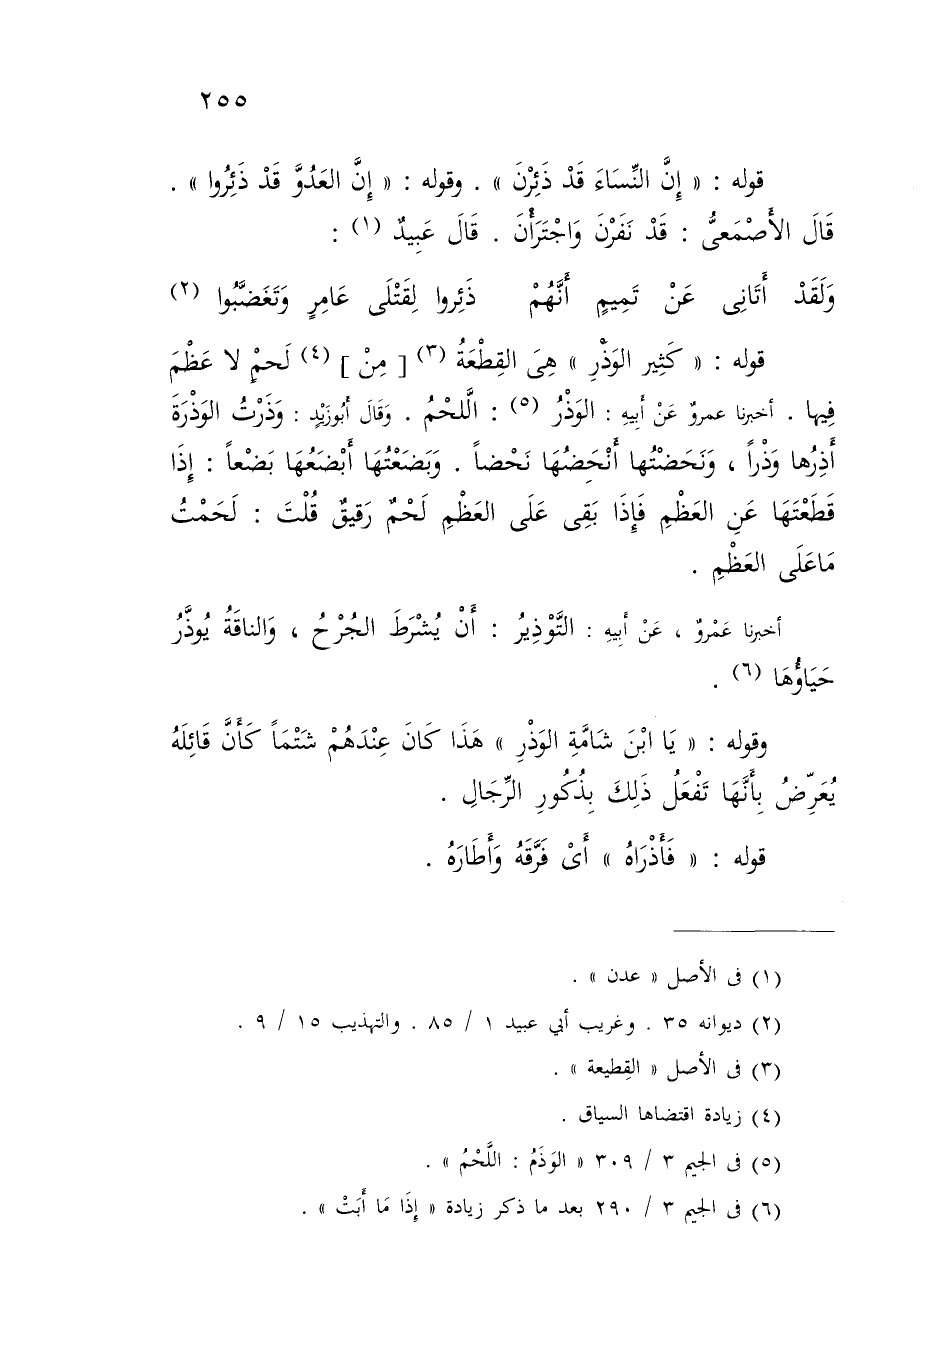 ٢٥٥
قوله : « إِنَّ النِّسَاءَ قَدْ ذَئِرْنَ » . وقوله : « إِنَّ العَدُوَّ قَدْ ذَئِرُوا » .
قَالَ الأَصْمَعىُّ : قَدْ نَفَرْنَ وَاجْتَرَأْنَ . قَالَ عَبِيدٌ (١) :
وَلَقَدْ أَتَانِى عَنْ تَمِيمٍ أَنَّهُمْ ذَئِروا لِقَتْلَى عَامِرٍ وَتَغَضَّبُوا (٢)
قوله : « كَثِير الوَذْرِ » هِىَ القِطْعَةُ (٣) [ مِنْ ] (٤) لَحمٍ لا عَظْمَ
فِيها . أخبرنا عمروٌ عَنْ أبيهِ : الوَذْرُ (٥) : الَّلحْمُ . وَقَالَ أَبُوزَيْدٍ : وَذَرْتُ الوَذْرَةَ
أَذِرُها وَذْراً ، وَنَحَضْتُها أَنْحَضُهَا نَحْضاً . وَبَضَعْتُهَا أَبْضَعُهَا بَضْعاً : إِذَا
قَطَعْتَهَا عَنِ العَظْمِ فَإِذَا بَقِى عَلَى العَظْمِ لَحْمٌ رَقِيقٌ قُلْتَ : لَحَمْتُ
مَاعَلَى العَظْمِ .
أخبرنا عَمْروٌ ، عَنْ أَبِيهِ : التَّوْذِيرُ : أَنْ يُشْرَطَ الجُرْحُ ، وَالناقَةُ يُوذَّرُ
حَيَاؤُهَا (٦) .
وقوله : « يَا ابْنَ شَامَّةِ الوَذْرِ » هَذَا كَانَ عِنْدَهُمْ شَتْمَاً كَأَنَّ قَائِلَهُ
يُعَرِّضُ بِأَنَّهَا تَفْعَلُ ذَلِكَ بِذُكُورِ الرِّجَالِ .
قوله : « فَأَذْرَاهُ » أَىْ فَرَّقَهُ وَأَطَارَهُ .
(١) فى الأصل « عدن » .
(٢) ديوانه ٣٥ . وغريب أبي عبيد ١ / ٨٥ . والتهذيب ١٥ / ٩ .
(٣) فى الأصل « القِطيعة » .
(٤) زيادة اقتضاها السياق .
(٥) فى الجيم ٣ / ٣٠٩ « الوَذَمُ : اللَّحْمُ » .
(٦) فى الجيم ٣ / ٢٩٠ بعد ما ذكر زيادة « إِذَا مَا أَبَتْ » .